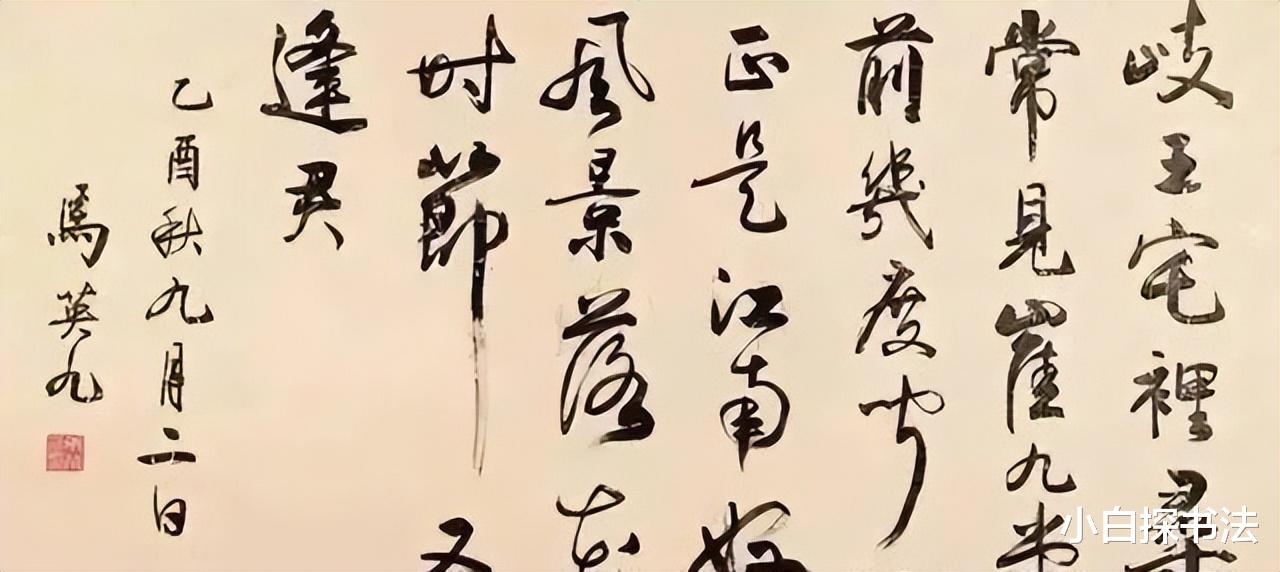 岐王宅裡尋
常見崔九堂
前幾度聞
正是江南好
風景落花
时節又
逢君
乙酉秋九月二日
馬英九
小白探书法